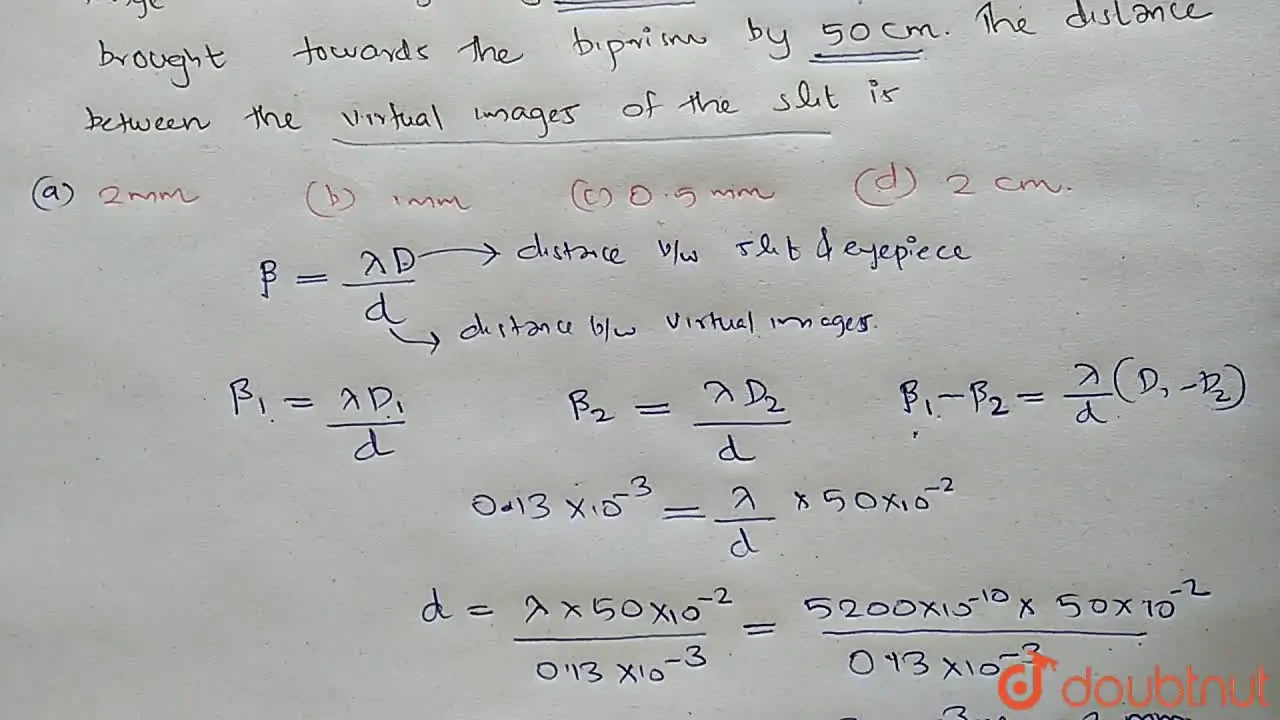 brought towards the biprism by 50 cm. The distance
between the virtual images of the slit is
(a) 2mm (b) 1mm (c) 0.5 mm (d) 2 cm.
β = λD/d → distance b/w slit & eyepiece
→ distance b/w virtual images.
β₁ = λD₁/d β₂ = λD₂/d β₁-β₂ = λ/d (D₁-D₂)
0.13 × 10⁻³ = λ/d × 50×10⁻²
d = λ×50×10⁻²/0.13×10⁻³ = 5200×10⁻¹⁰ × 50×10⁻²/0.13×10⁻³
doubtnut